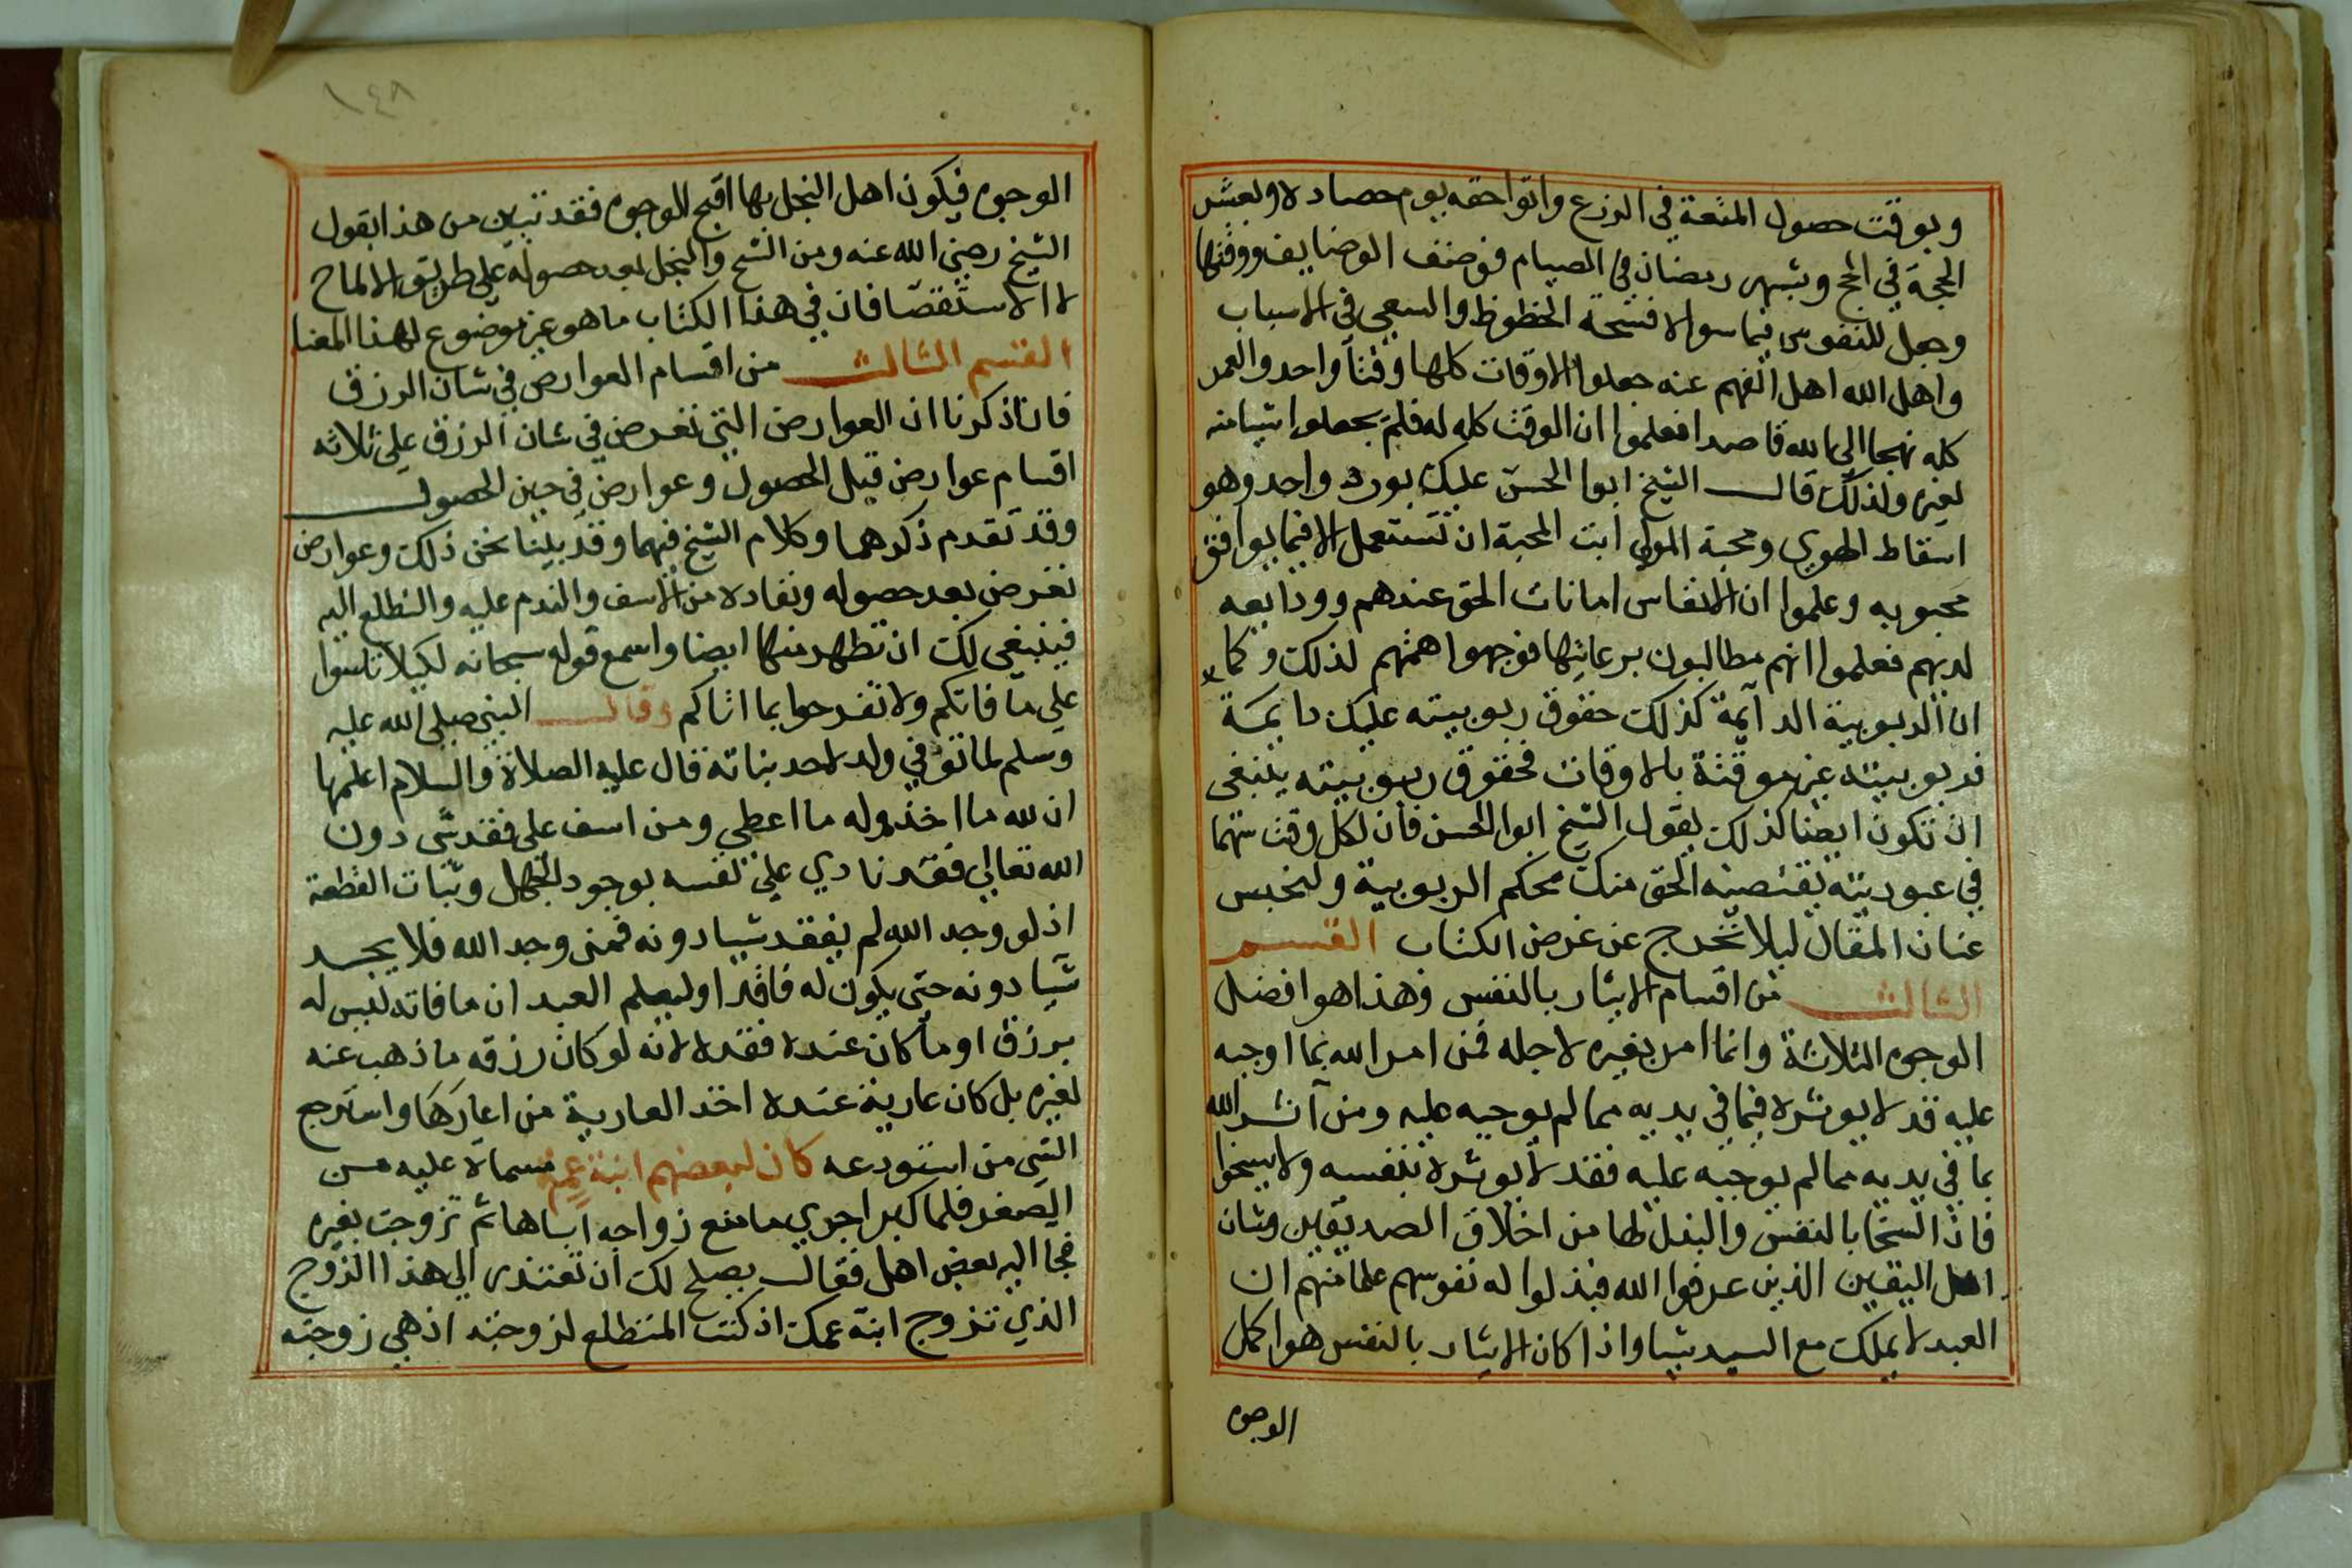 وبوقت حصول المنعة في الزرع واتوا حقه يوم حصاده وبعشر
الحجة في الحج وبشهر رمضان في الصيام فوضف الوضايف ووقتها
وجعل للنفوس فيما سواه فسحة الحظوظ والسعي في الاسباب
واهل الله اهل الفهم عنه جعلوا الاوقات كلها وقتا واحد والعمر
كله نهجا الى الله قاصدا فعلموا ان الوقت كله له فلم يجعلوا شيا منه
لغيره ولذلك قال الشيخ ابوا الحسن عليك بورد واحد وهو
اسقاط الهوي ومحبة المولى ابت المحبة ان تستعمل الا فيما يوافق
محبوبه وعلموا ان الانفاس امانات الحق عندهم وودايعه
لديهم فعلموا انهم مطالبون برعايتها فوجهوا همتهم لذلك وكما
ان الربوبية الدايمة كذلك حقوق ربوبيته عليك دايمة
فربوبيته غير موقتة بالاوقات فحقوق ربوبيته ينبغي
ان تكون ايضا كذلك يقول الشيخ ابوا الحسن فان لكل وقت سهما
في عبوديته يقتضيه الحق منك بحكم الربوبية ولنحبس
عنان المقال ليلا نخرج عن غرض الكتاب القسم
الثالث من اقسام الايثار بالنفس وهذا هو افضل
الوجوه الثلاثة وانما امر بغيره لاجله فمن امر الله بما اوجبه
عليه قد لا يوثره فيما في يديه مما لم يوجبه عليه ومن آثر الله
بما في يديه مما لم يوجبه عليه فقد لا يوثره بنفسه ولا يسخوا
فان السخا بالنفس والبذل لها من اخلاق الصديقين وشان
اهل اليقين الذين عرفوا الله فبذلوا له نفوسهم علما منهم ان
العبد لا يملك مع السيد شيا واذا كان الايثار بالنفس هو اكمل
الوجوه
١٤٨
الوجوه فيكون اهل البخل بها اقبح الوجوه فقد تبين من هذا بقول
الشيخ رضي الله عنه ومن الشح والبخل بعد حصوله علي طريق الالماح
لا الاستقصا فان في هذا الكتاب ما هو غير موضوع لهذا المعنا
القسم الثالث من اقسام العوارض في شان الرزق
فان ذكرنا ان العوارض التي تعرض في شان الرزق علي ثلاثه
اقسام عوارض قبل الحصول وعوارض في حين الحصول
وقد تقدم ذكرهما وكلام الشيخ فيهما وقد بينا نحن ذلك وعوارض
تعرض بعد حصوله ونفاده من الاسف والندم عليه والتطلع اليه
فينبغي لك ان تطهر منها ايضا واسمع قوله سبحانه لكيلا تاسوا
علي ما فاتكم ولا تفرحوا بما اتاكم وقال النبي صلى الله عليه
وسلم لما توفي ولد لاحد بناته قال عليه الصلاة والسلام اعلمها
ان لله ما اخذ وله ما اعطي ومن اسف علي فقد شي دون
الله تعالي فقد نادي علي نفسه بوجود الجهل وثبات القطعة
اذ لو وجد الله لم يفقد شيا دونه فمن وجد الله فلا يجد
شيا دونه حتى يكون له فاقدا وليعلم العبد ان ما فاته ليس له
برزق او ما كان عنده ففقده لانه لو كان رزقه ما ذهب عنه
لغيره بل كان عارية عنده اخذ العارية من اعارها واسترجع
الشي من استودعه كان لبعضهم ابنة عم مسماة عليه من
الصغر فلما كبر اجري ما منع زواجه اياها ثم تزوجت بغيره
فجا اليه بعض اهل فقال يصلح لك ان تعتذر الي هذا الزوج
الذي تزوج ابنة عمك اذ كنت المتطلع لزوجته اذ هي زوجته